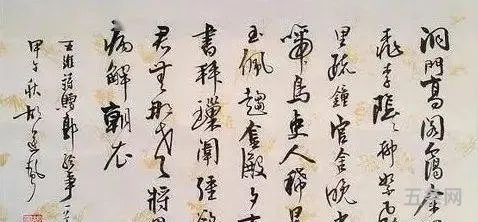 洞門高閣靄餘
桃李陰々柳絮
里疏鐘官舍晚
啼鳥吏人稀晨
玉佩趨金殿夕
書拜瑣闈強欲
君無那老將
病解朝衣
王維 郭給事
甲午秋